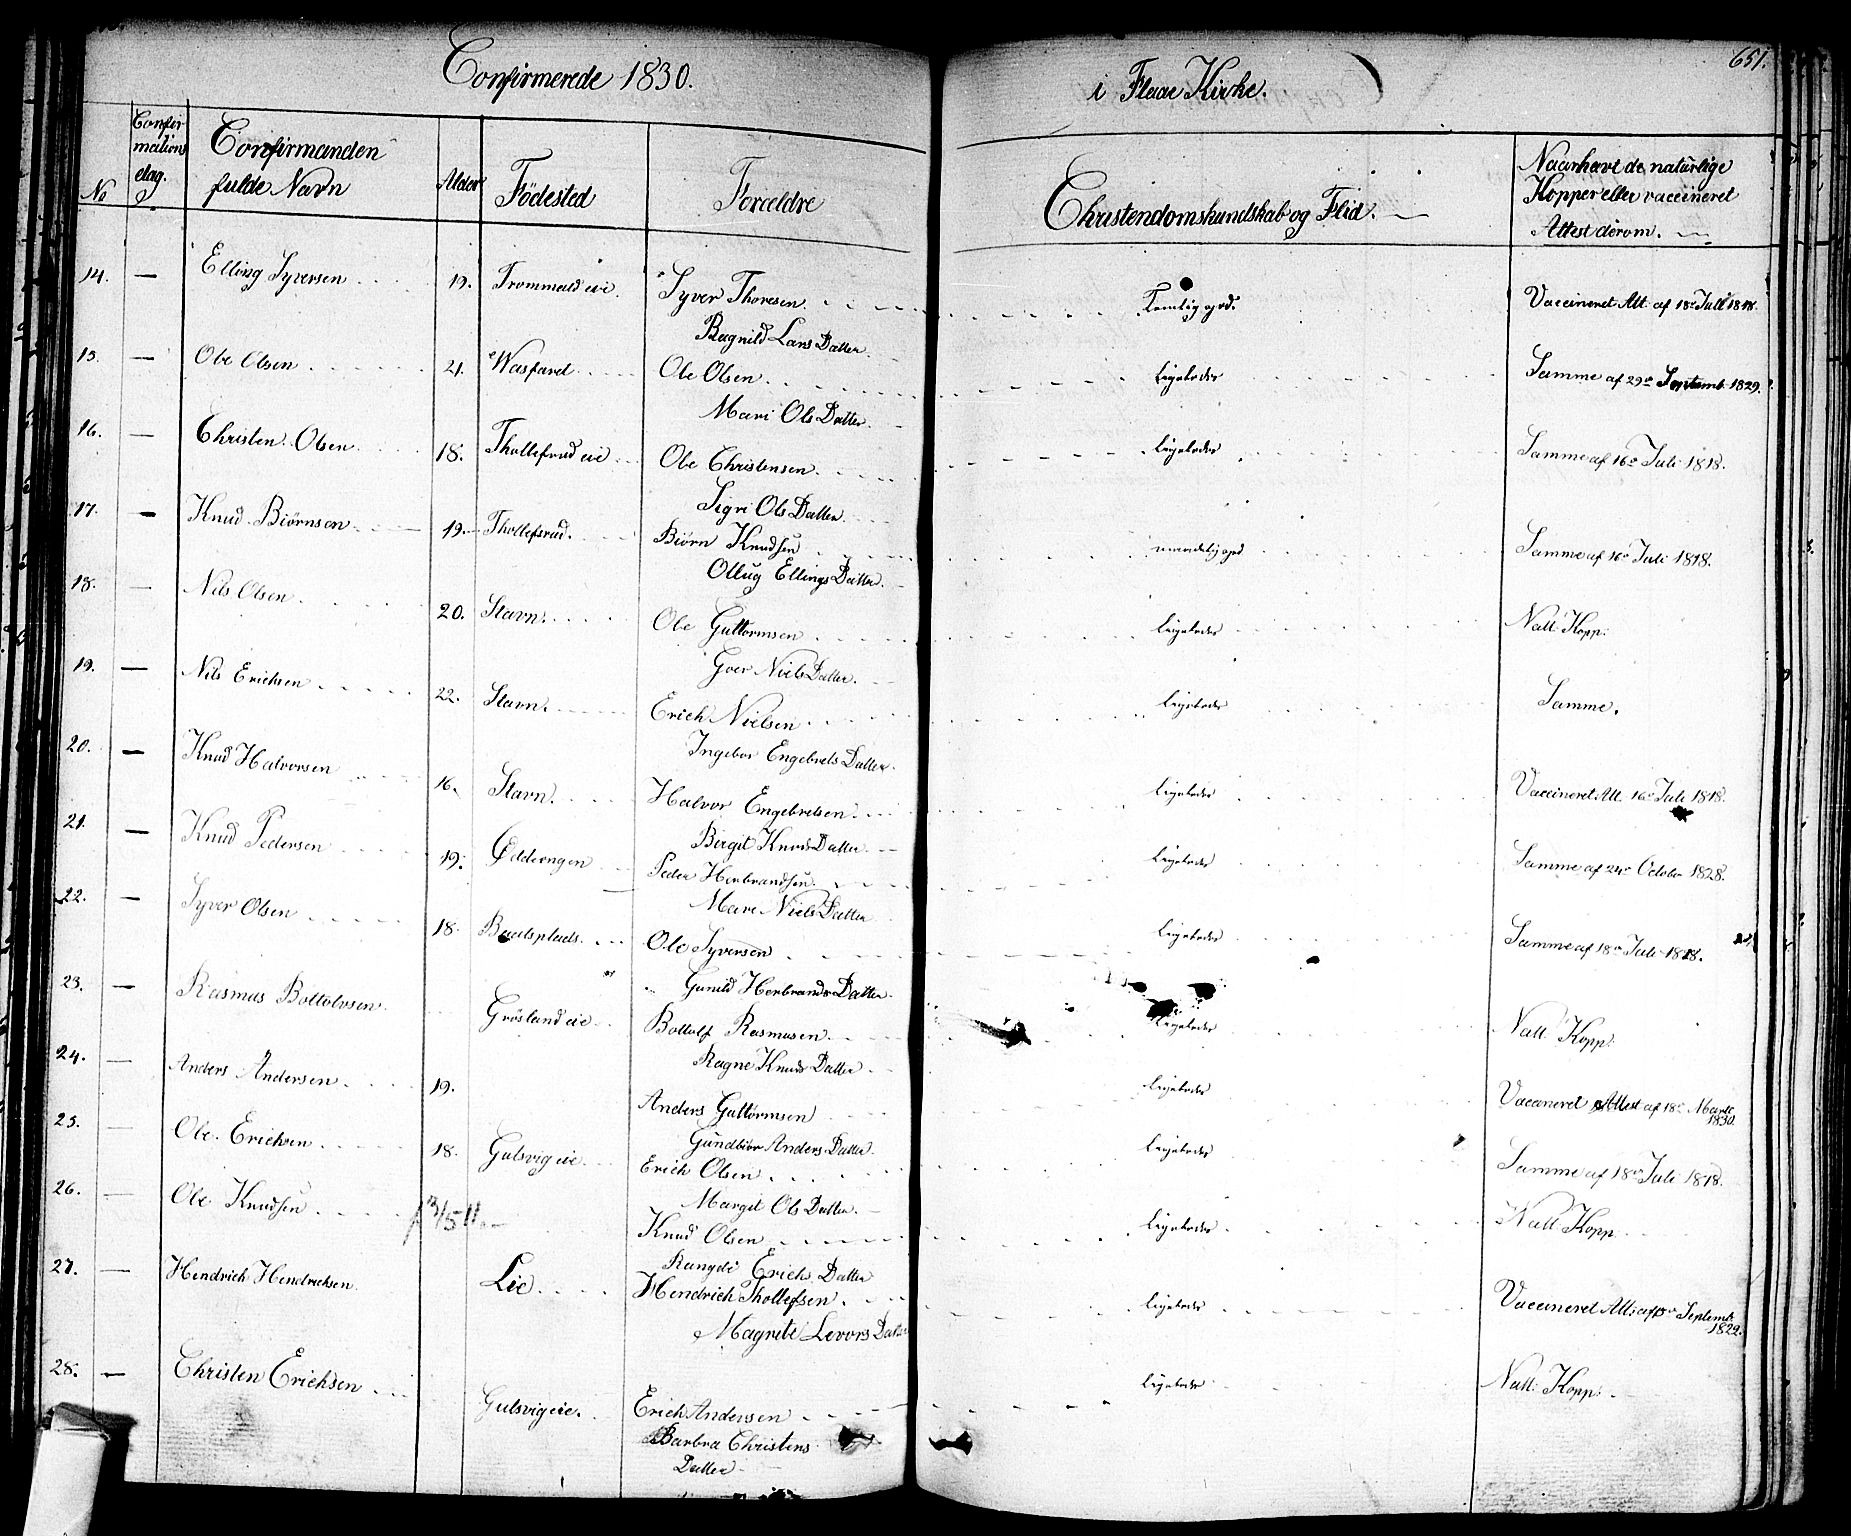 Confirmerede 1830. i Flaae Kirke. 651.
No
Confir-
mations
dag.
Confirmanden
fulde Navn
Alder
Födested
Forældre
Christendomskundskab og Flid.
Naar havt de naturlige
Kopper eller vaccineret
Attest derom.
14. — Elling Syversen 19. Trommald eie. Syver Thoresen Temlig god. Vaccineret Att. af 18de Juli 1818.
Ragnild Lars Datter
15. — Ole Olsen 21. Wasfaret Ole Olsen Ligeledes Samme af 29de Septemb. 1829.
Mari Ols Datter
16. — Christen Olsen 18. Thollefsrud eie Ole Christensen Ligeledes Samme af 16de Juli 1818.
Sigri Ols Datter
17. — Knud Biörnsen 19. Thollefsrud. Biörn Knudsen maadelig god Samme af 16de Juli 1818.
Ollug Ellings Datter.
18. — Nils Olsen 20. Stavn. Ole Guttormsen Ligeledes Natl. Kopp.
Goer Niels Datter.
19. — Nils Erichsen 22. Stavn. Erich Nielsen Ligeledes Samme.
Ingebor Engebrets Datter.
20. — Knud Halvorsen 16. Stavn. Halvor Engebretsen. Ligeledes Vaccineret Att. 16de Juli 1818.
Birgit Knuds Datter
21. — Knud Pedersen 19. Öddeengen Peder Herbrandsen Ligeledes Samme af 24de October 1828.
Mari Niels Datter
22. — Syver Olsen 18. Baadsplads. Ole Syversen Ligeledes Samme af 18de Juli 1818.
Gunild Herbrands Datter.
23. — Rasmus Bottolvsen Grösland eie Bottolf Rasmusen Ligeledes Natl. Kopp.
Ragne Knuds Datter
24. — Anders Andersen 19. Anders Guttormsen Ligeledes Vaccineret Attest af 18de Marts
1830.
Gundbiör Anders Datter
25. Ole Erichsen 18. Gulsvig eie Erich Olsen Ligeledes Samme af 18de Juli 1818.
Margit Ols Datter
26. — Ole Knudsen 13/5 11. Knud Olsen Ligeledes Natl. Kopp
Rangdi Erichs Datter
27. — Hendrich Hendrichsen Lie Hendrich Thollefsen. Ligeledes Vaccineret Att. af Septemb.
1829.
Magrete Levors Datter
28. — Christen Erichsen Gulsvig eie. Erich Andersen Ligeledes Natl. Kopp.
Barbra Christens
Datter